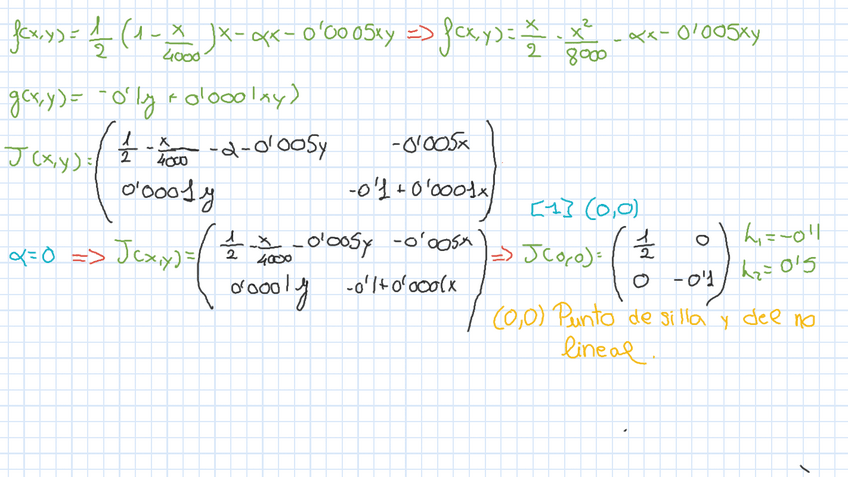 f(x,y) = 1/2 (1 - x/4000) x - αx - 0'0005xy => f(x,y) = x/2 - x²/8000 - αx - 0'005xy
g(x,y) = -0'1y + 0'0001xy)
J(x,y) = ( 1/2 - x/4000 - α - 0'005y -0'005x
0'0001y -0'1 + 0'0001x )
[1] (0,0)
α=0 => J(x,y) = ( 1/2 - x/4000 - 0'005y -0'005x
0'0001y -0'1 + 0'0001x ) => J(0,0) = ( 1/2 0
0 -0'1 ) λ₁ = -0'1
λ₂ = 0'5
(0,0) Punto de silla y del no
lineal.